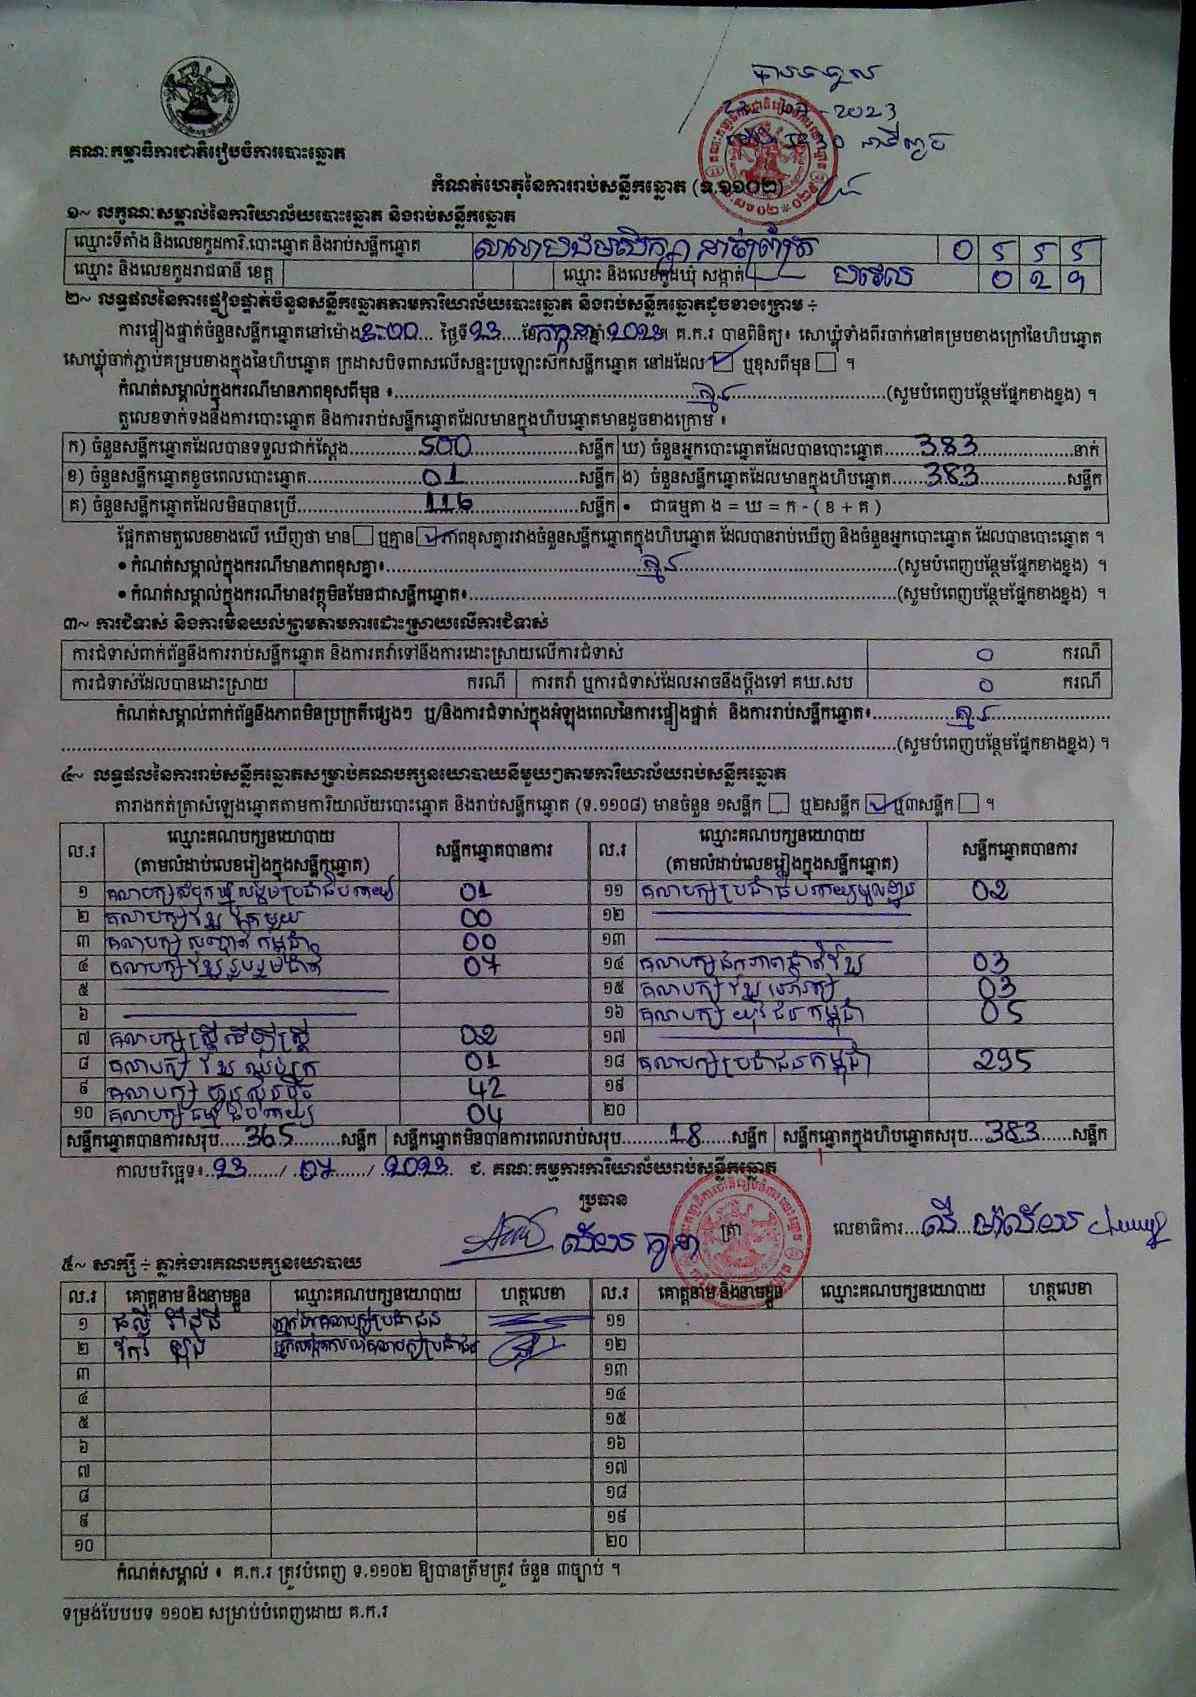 បានទទួល
2023
គណៈកម្មាធិការជាតិរៀបចំការបោះឆ្នោត
កំណត់ហេតុនៃការរាប់សន្លឹកឆ្នោត (ទ.១១០២)
១~ លក្ខណៈសម្គាល់នៃការិយាល័យបោះឆ្នោត និងរាប់សន្លឹកឆ្នោត
ឈ្មោះទីតាំង និងលេខកូដការិ.បោះឆ្នោត និងរាប់សន្លឹកឆ្នោត សាលាបឋមសិក្សា 0 5 5 5
ឈ្មោះ និងលេខកូដរាជធានី ខេត្ត ឈ្មោះ និងលេខកូដឃុំ សង្កាត់ បវេល 0 2 1
២~ លទ្ធផលនៃការផ្ទៀងផ្ទាត់ចំនួនសន្លឹកឆ្នោតតាមការិយាល័យបោះឆ្នោត និងរាប់សន្លឹកឆ្នោតដូចខាងក្រោម ÷
ការផ្ទៀងផ្ទាត់ចំនួនសន្លឹកឆ្នោតនៅម៉ោង 3:00 ថ្ងៃទី 23 ខែ កក្កដា ឆ្នាំ 2023 គ.ក.រ បានពិនិត្យ៖ សោឃ្លុំទាំងពីរចាក់នៅគម្របខាងក្រៅនៃហិបឆ្នោត
សោឃ្លុំចាក់ភ្ជាប់គម្របខាងក្នុងនៃហិបឆ្នោត ក្រដាសបិទពាសលើសន្ទះប្រឡោះស៊កសន្លឹកឆ្នោត នៅដដែល ☑ ឬខុសពីមុន ☐ ។
កំណត់សម្គាល់ក្នុងករណីមានភាពខុសពីមុន ៖ គ្មាន (សូមបំពេញបន្ថែមផ្នែកខាងខ្នង) ។
តួលេខទាក់ទងនឹងការបោះឆ្នោត និងការរាប់សន្លឹកឆ្នោតដែលមានក្នុងហិបឆ្នោតមានដូចខាងក្រោម ៖
ក) ចំនួនសន្លឹកឆ្នោតដែលបានទទួលជាក់ស្តែង 500 សន្លឹក ឃ) ចំនួនអ្នកបោះឆ្នោតដែលបានបោះឆ្នោត 383 នាក់
ខ) ចំនួនសន្លឹកឆ្នោតខូចពេលបោះឆ្នោត 01 សន្លឹក ង) ចំនួនសន្លឹកឆ្នោតដែលមានក្នុងហិបឆ្នោត 383 សន្លឹក
គ) ចំនួនសន្លឹកឆ្នោតដែលមិនបានប្រើ 116 សន្លឹក • ជាធម្មតា ង = ឃ = ក - ( ខ + គ )
ផ្អែកតាមតួលេខខាងលើ ឃើញថា មាន ☐ ឬគ្មាន ☑ ភាពខុសគ្នារវាងចំនួនសន្លឹកឆ្នោតក្នុងហិបឆ្នោត ដែលបានរាប់ឃើញ និងចំនួនអ្នកបោះឆ្នោត ដែលបានបោះឆ្នោត ។
• កំណត់សម្គាល់ក្នុងករណីមានភាពខុសគ្នា៖ គ្មាន (សូមបំពេញបន្ថែមផ្នែកខាងខ្នង) ។
• កំណត់សម្គាល់ក្នុងករណីមានវត្ថុមិនមែនជាសន្លឹកឆ្នោត៖ (សូមបំពេញបន្ថែមផ្នែកខាងខ្នង) ។
៣~ ការជំទាស់ និងការមិនយល់ព្រមតាមការដោះស្រាយលើការជំទាស់
ការជំទាស់ពាក់ព័ន្ធនឹងការរាប់សន្លឹកឆ្នោត និងការតវ៉ាទៅនឹងការដោះស្រាយលើការជំទាស់ 0 ករណី
ការជំទាស់ដែលបានដោះស្រាយ ករណី ការតវ៉ា ឬការជំទាស់ដែលអាចនឹងប្តឹងទៅ គឃ.សប 0 ករណី
កំណត់សម្គាល់ពាក់ព័ន្ធនឹងភាពមិនប្រក្រតីផ្សេងៗ ឬ/និងការជំទាស់ក្នុងអំឡុងពេលនៃការផ្ទៀងផ្ទាត់ និងការរាប់សន្លឹកឆ្នោត៖ គ្មាន
(សូមបំពេញបន្ថែមផ្នែកខាងខ្នង) ។
៤~ លទ្ធផលនៃការរាប់សន្លឹកឆ្នោតសម្រាប់គណបក្សនយោបាយនីមួយៗតាមការិយាល័យរាប់សន្លឹកឆ្នោត
តារាងកត់ត្រាសំឡេងឆ្នោតតាមការិយាល័យបោះឆ្នោត និងរាប់សន្លឹកឆ្នោត (ទ.១១០៨) មានចំនួន ១សន្លឹក ☐ ឬ២សន្លឹក ☑ ឬ៣សន្លឹក ☐ ។
ល.រ ឈ្មោះគណបក្សនយោបាយ (តាមលំដាប់លេខរៀងក្នុងសន្លឹកឆ្នោត) សន្លឹកឆ្នោតបានការ ល.រ ឈ្មោះគណបក្សនយោបាយ (តាមលំដាប់លេខរៀងក្នុងសន្លឹកឆ្នោត) សន្លឹកឆ្នោតបានការ
១ គណបក្សសំបុកឃ្មុំសង្គមប្រជាធិបតេយ្យ 01 ១១ គណបក្សប្រជាធិបតេយ្យមូលដ្ឋាន 02
២ គណបក្សខ្មែរតែមួយ 00 ១២
៣ គណបក្សសញ្ជាតិកម្ពុជា 00 ១៣
៤ គណបក្សខ្មែររួបរួមជាតិ 07 ១៤ គណបក្សឯកភាពជាតិខ្មែរ 03
៥ ១៥ គណបក្សខ្មែរអភិរក្ស 03
៦ ១៦ គណបក្សយុវជនកម្ពុជា 05
៧ គណបក្សស្ត្រីដើម្បីស្ត្រី 02 ១៧
៨ គណបក្សខ្មែរឈប់ក្រ 01 ១៨ គណបក្សប្រជាជនកម្ពុជា 295
៩ គណបក្សហ្វ៊ុនស៊ិនប៉ិច 42 ១៩
១០ គណបក្សធម្មាធិបតេយ្យ 04 ២០
សន្លឹកឆ្នោតបានការសរុប 365 សន្លឹក សន្លឹកឆ្នោតមិនបានការពេលរាប់សរុប 18 សន្លឹក សន្លឹកឆ្នោតក្នុងហិបឆ្នោតសរុប 383 សន្លឹក
កាលបរិច្ឆេទ៖ 23 / 07 / 2023 ជ. គណៈកម្មការការិយាល័យរាប់សន្លឹកឆ្នោត
ប្រធាន
ត្រា លេខាធិការ
៥~ សាក្សី ÷ ភ្នាក់ងារគណបក្សនយោបាយ
ល.រ គោត្តនាម និងនាមខ្លួន ឈ្មោះគណបក្សនយោបាយ ហត្ថលេខា ល.រ គោត្តនាម និងនាមខ្លួន ឈ្មោះគណបក្សនយោបាយ ហត្ថលេខា
១ ភ្នាក់ងារគណបក្សប្រជាជន ១១
២ ១២
៣ ១៣
៤ ១៤
៥ ១៥
៦ ១៦
៧ ១៧
៨ ១៨
៩ ១៩
១០ ២០
កំណត់សម្គាល់ ៖ គ.ក.រ ត្រូវបំពេញ ទ.១១០២ ឱ្យបានត្រឹមត្រូវ ចំនួន ៣ច្បាប់ ។
ទម្រង់បែបបទ ១១០២ សម្រាប់បំពេញដោយ គ.ក.រ